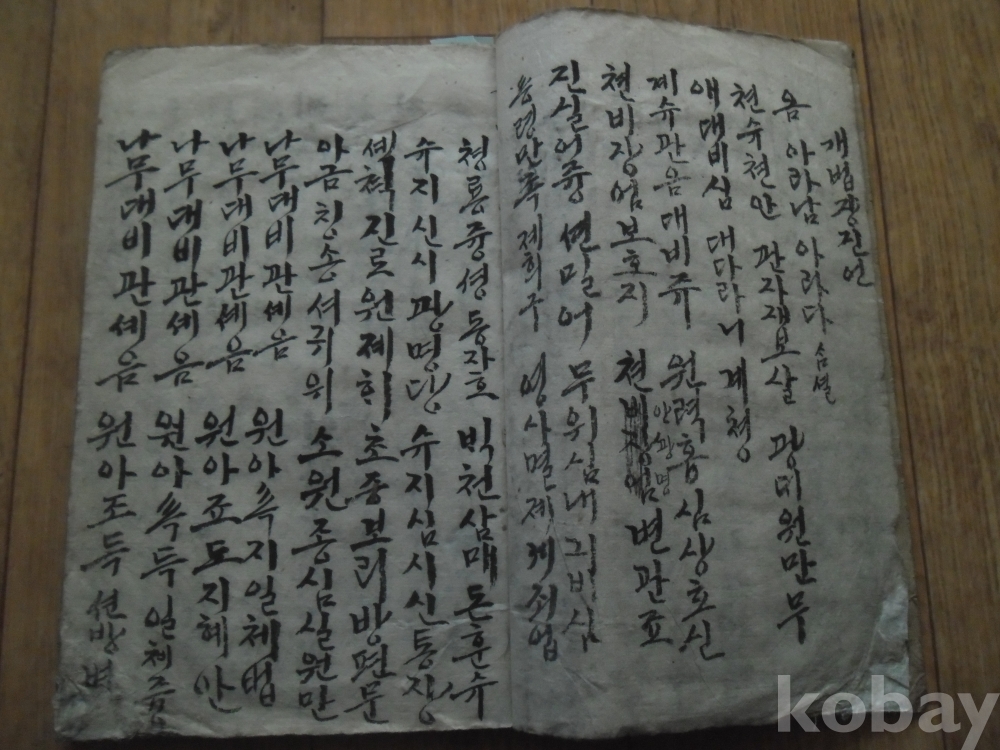 개법장진언
옴 아라남 아라다 삼셜
쳔슈쳔안 관자재보살 광대원만무
애대비심 대다라니 계청
계슈관음대비쥬 원력홍심상호신
쳔비장엄보호지 쳔 안광명 변관죠
진실어즁 션밀어 무위심내 긔비심
속령만족 제희구 영사멸제 제죄업
쳥룡즁셩동자호 빅쳔삼매돈훈슈
슈지신시광명당 슈지심시신통장
셰쳑진로원졔희 초증보리방편문
아금칭송셔귀위 소원종심실원만
나무대비관셰음 원아속지일체법
나무대비관셰음 원아죠도지혜안
나무대비관셰음 원아속득일체즁
나무대비관셰음 원아조득션방변
kobay